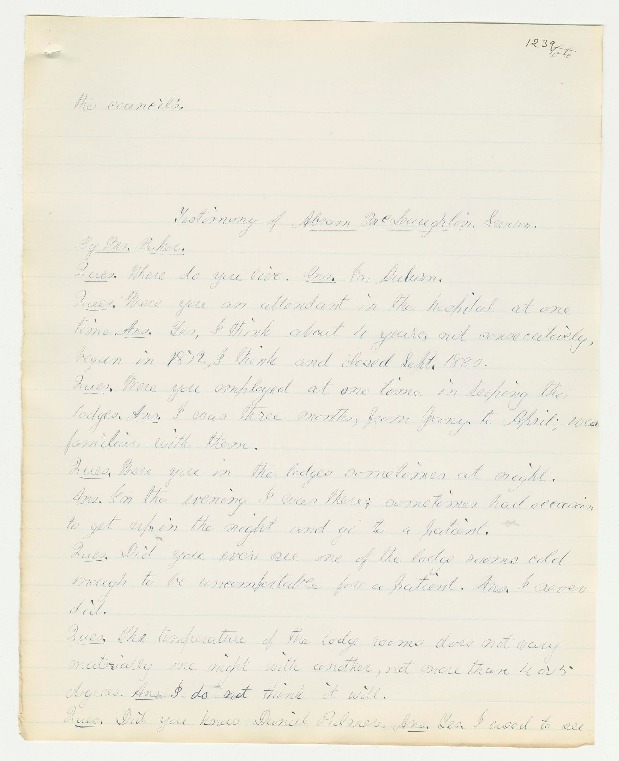 1239
the council.
Testimony of Abram McLaughlin. Sworn.
By Mr.
Ques. Where do you live. Ans. In Auburn.
Ques. Were you an attendant in the hospital at one
time Ans. Yes, I think about 4 years, not consecutively,
began in 1872, I think and closed Sept. 1880.
Ques. Were you employed at one time in keeping the
lodges Ans. I was three months, from Jany. to April; was
familiar with them.
Ques. Were you in the lodges sometimes at night.
Ans. In the evening I was there; sometimes had occasion
to get up in the night and go to a patient.
Ques. Did you ever see one of the lodge rooms cold
enough to be uncomfortable for a patient. Ans. I never
did.
Ques. The temperature of the lodge rooms does not vary
materially one night with another, not more than 4 or 5
degrees. Ans I do not think it will.
Ques. Did you know Daniel Ans. Yes I used to see